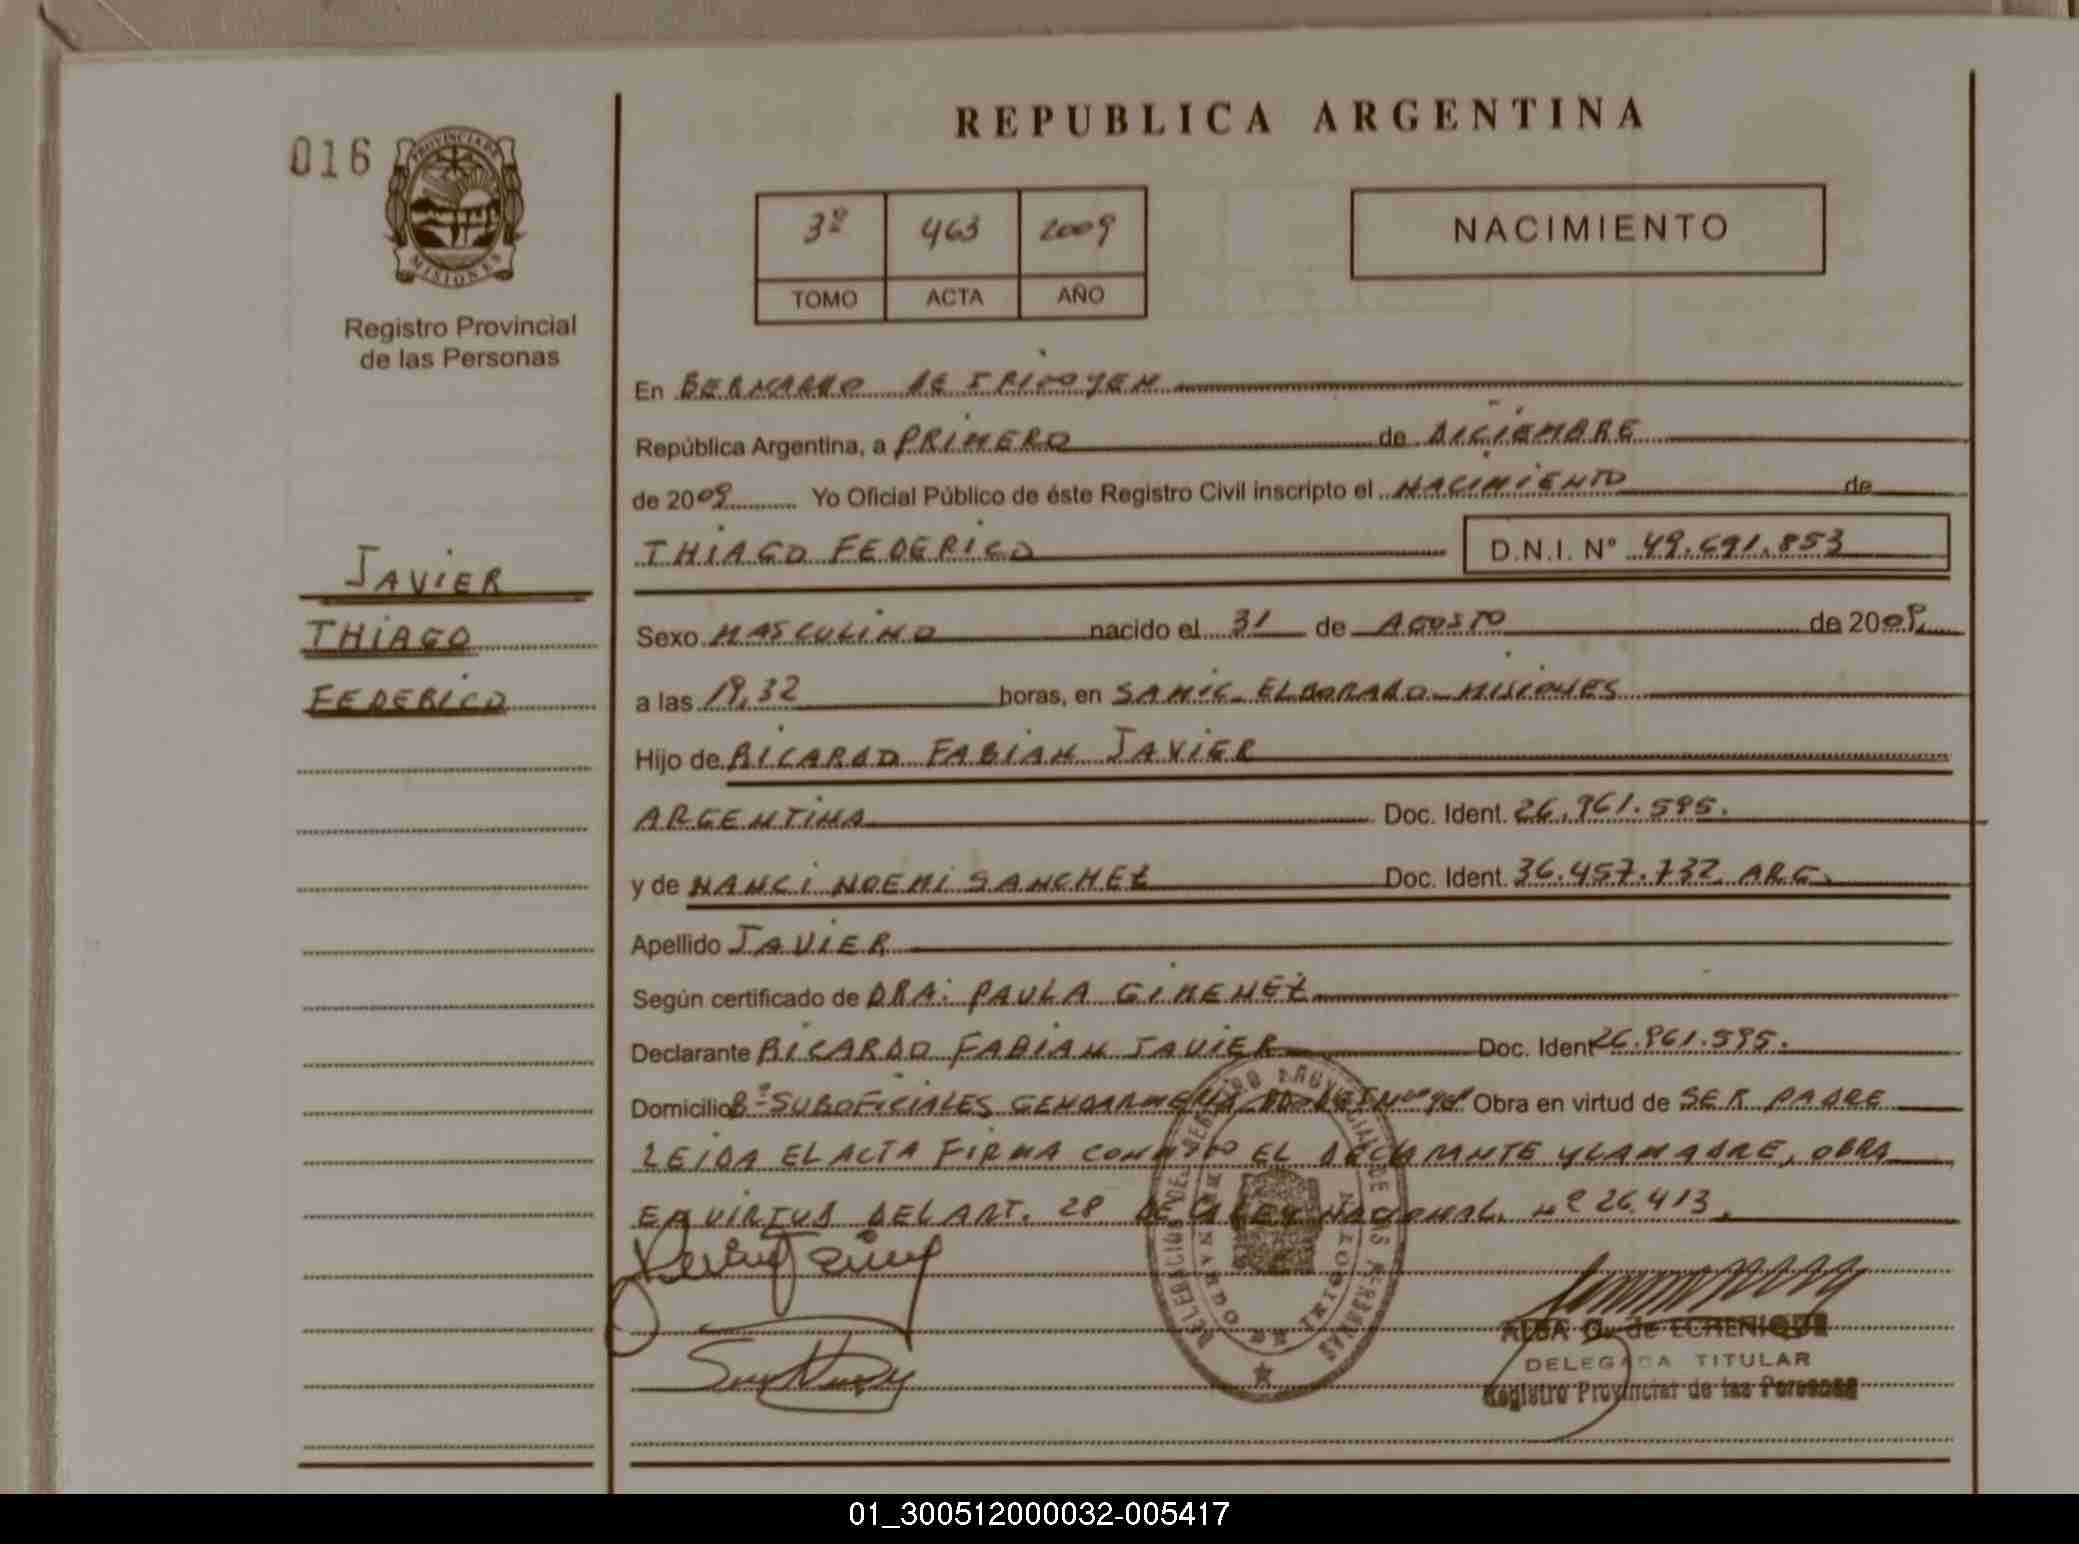 REPUBLICA ARGENTINA
016
PROVINCIA DE
MISIONES
Registro Provincial
de las Personas
3º 463 2009
TOMO ACTA AÑO
NACIMIENTO
JAVIER
THIAGO
FEDERICO
En BERNARDO DE IRIGOYEN
República Argentina, a PRIMERO de DICIEMBRE
de 2009 Yo Oficial Público de éste Registro Civil inscripto el NACIMIENTO de
THIAGO FEDERICO D.N.I. N° 49.691.853
Sexo MASCULINO nacido el 31 de AGOSTO de 2009.
a las 19,32 horas, en SAMIC ELDORADO MISIONES
Hijo de RICARDO FABIAN JAVIER
ARGENTINA Doc. Ident. 26.961.595.
y de NANCI NOEMI SANCHEZ Doc. Ident. 36.457.732 ARG.
Apellido JAVIER
Según certificado de DRA: PAULA GIMENEZ
Declarante RICARDO FABIAN JAVIER Doc. Ident 26.961.595.
Domicilio Bº SUBOFICIALES GENDARMERIA Obra en virtud de SER PADRE
LEIDA EL ACTA FIRMA CONMIGO EL DECLARANTE Y LA MADRE, OBRA
EN VIRTUD DEL ART. 28 DE LA LEY NACIONAL Nº 26.413.
DELEGACION DEL REGISTRO PROVINCIAL DE LAS PERSONAS
BERNARDO DE IRIGOYEN
ALBA G. de ECHENIQUE
DELEGADA TITULAR
Registro Provincial de las Personas
01_300512000032-005417